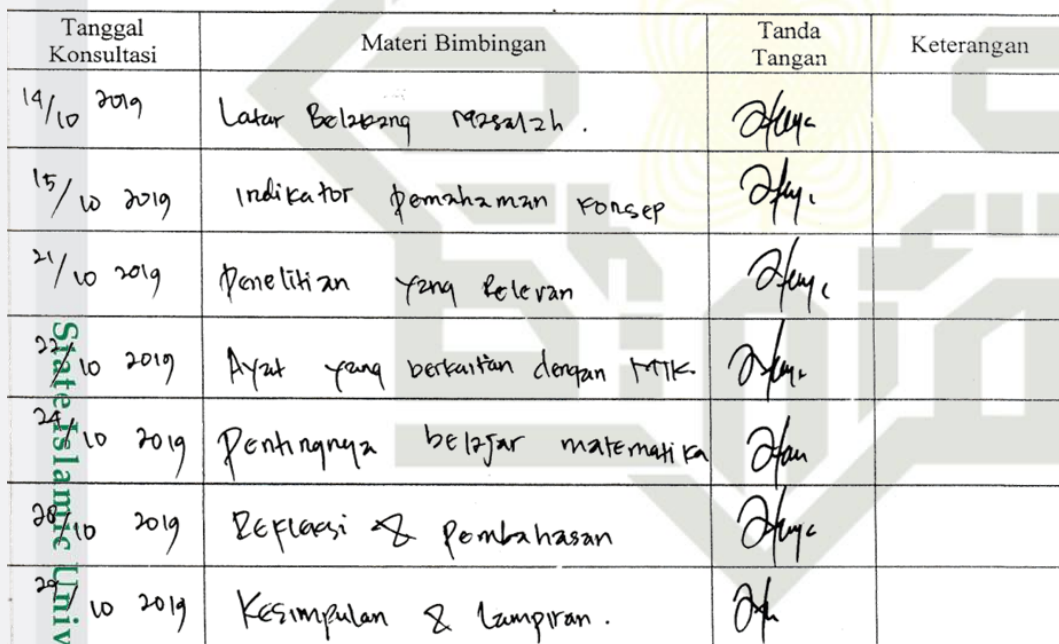 Tanggal Konsultasi Materi Bimbingan Tanda Tangan Keterangan
14/10 2019 Latar Belakang Masalah.
15/10 2019 Indikator pemahaman konsep
21/10 2019 Penelitian yang Relevan
22/10 2019 Ayat yang berkaitan dengan MTK.
24/10 2019 Pentingnya belajar matematika
28/10 2019 Refleksi & Pembahasan
29/10 2019 Kesimpulan & Lampiran.
State Islamic Univ